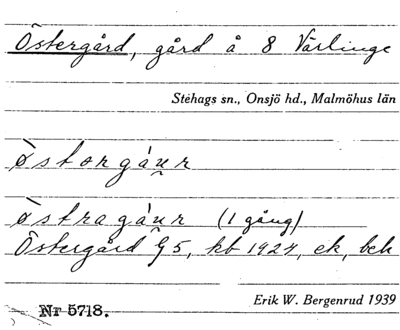 Östergård, gård å 8 Värlinge
Stehags sn., Onsjö hd., Malmöhus län
ø̀storgáu̯r
ø̀stragáu̯r (1 gång)
Östergård G5, kb 1924, ek, bek
Erik W. Bergenrud 1939
Nr 5718.